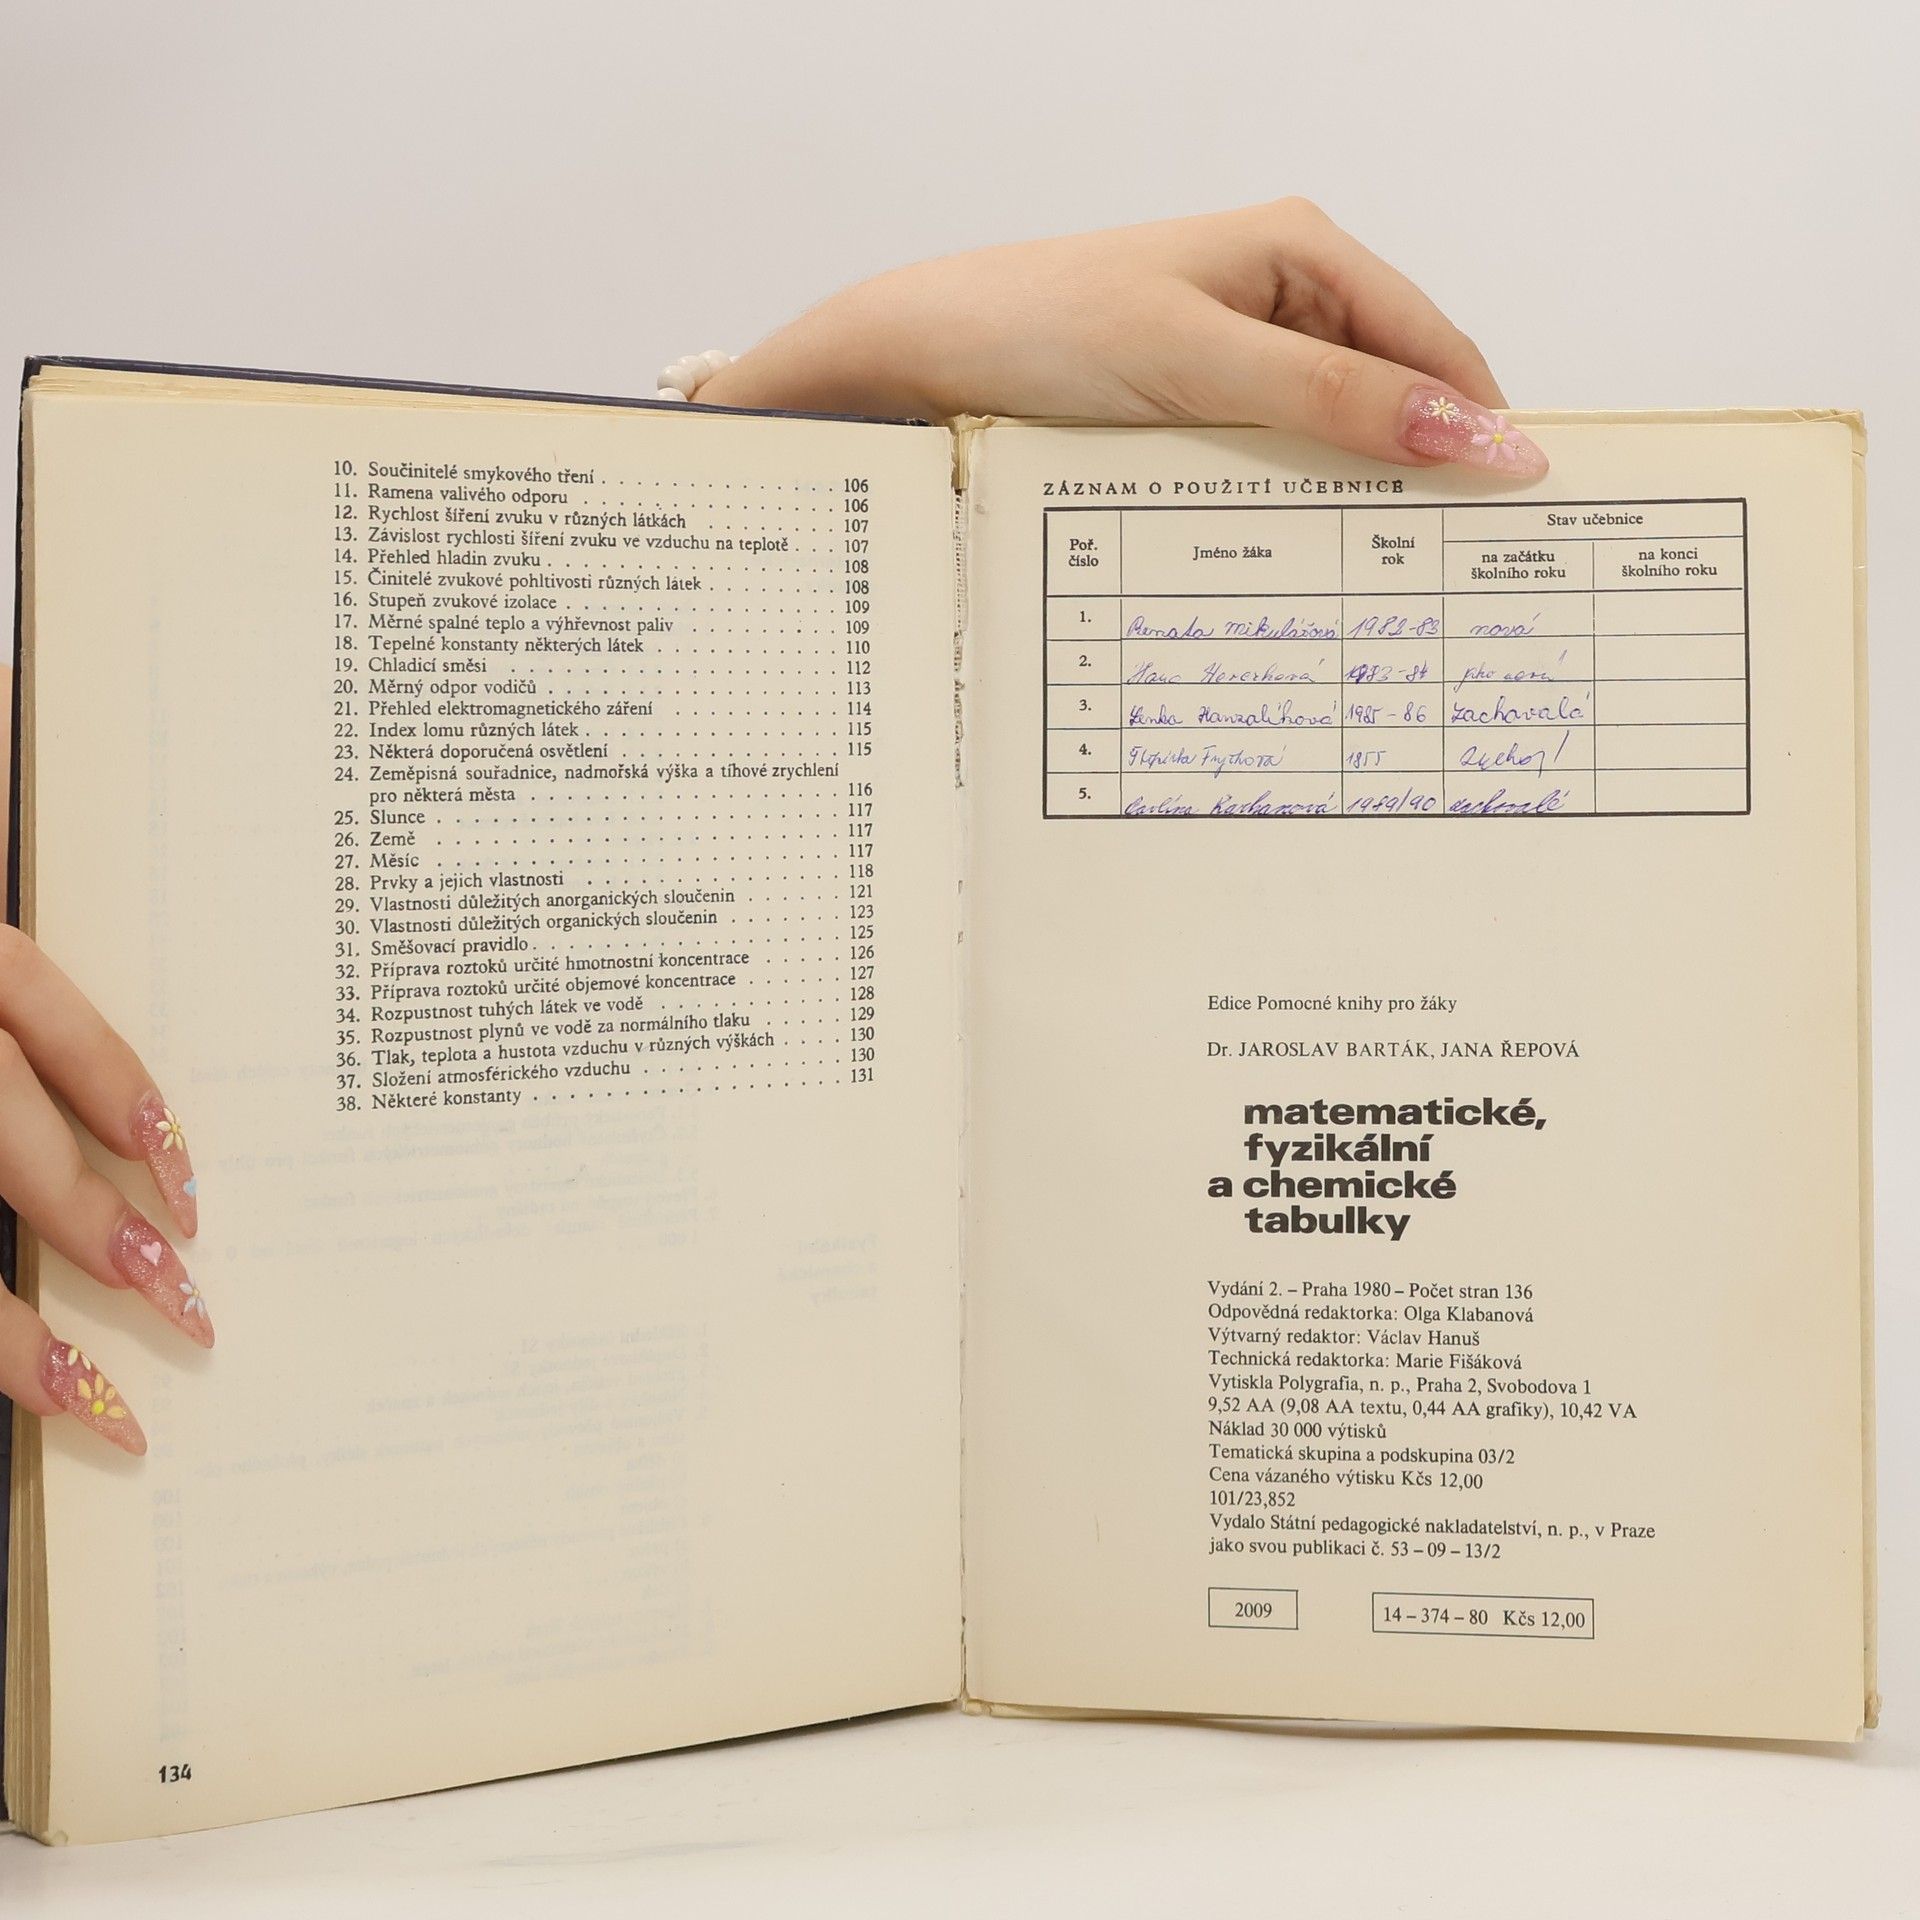 10. Součinitelé smykového tření . . . . . . . . . . . . . . 106
11. Ramena valivého odporu . . . . . . . . . . . . . . 106
12. Rychlost šíření zvuku v různých látkách . . . . . . . 107
13. Závislost rychlosti šíření zvuku ve vzduchu na teplotě . . . 107
14. Přehled hladin zvuku . . . . . . . . . . . . . . . . 108
15. Činitelé zvukové pohltivosti různých látek . . . . . . . 108
16. Stupeň zvukové izolace . . . . . . . . . . . . . . . 109
17. Měrné spalné teplo a výhřevnost paliv . . . . . . . . 109
18. Tepelné konstanty některých látek . . . . . . . . . . 110
19. Chladicí směsi . . . . . . . . . . . . . . . . . . 112
20. Měrný odpor vodičů . . . . . . . . . . . . . . . . 113
21. Přehled elektromagnetického záření . . . . . . . . . 114
22. Index lomu různých látek . . . . . . . . . . . . . . 115
23. Některá doporučená osvětlení . . . . . . . . . . . . 115
24. Zeměpisná souřadnice, nadmořská výška a tíhové zrychlení
pro některá města . . . . . . . . . . . . . . . . . 116
25. Slunce . . . . . . . . . . . . . . . . . . . . . . 117
26. Země . . . . . . . . . . . . . . . . . . . . . . 117
27. Měsíc . . . . . . . . . . . . . . . . . . . . . . 117
28. Prvky a jejich vlastnosti . . . . . . . . . . . . . . 118
29. Vlastnosti důležitých anorganických sloučenin . . . . . . 121
30. Vlastnosti důležitých organických sloučenin . . . . . . . 123
31. Směšovací pravidlo . . . . . . . . . . . . . . . . . 125
32. Příprava roztoků určité hmotnostní koncentrace . . . . . 126
33. Příprava roztoků určité objemové koncentrace . . . . . . 127
34. Rozpustnost tuhých látek ve vodě . . . . . . . . . . 128
35. Rozpustnost plynů ve vodě za normálního tlaku . . . . . 129
36. Tlak, teplota a hustota vzduchu v různých výškách . . . . 130
37. Složení atmosférického vzduchu . . . . . . . . . . . 130
38. Některé konstanty . . . . . . . . . . . . . . . . . 131
134
ZÁZNAM O POUŽITÍ UČEBNICE
Poř. číslo Jméno žáka Školní rok Stav učebnice
na začátku školního roku na konci školního roku
1. Renata Mikulášová 1982-83 nová
2. 1983-84 jako nová
3. Lenka Hanzalíková 1985-86 zachovalá
4. 1855
5. 1989/90 zachovalé
Edice Pomocné knihy pro žáky
Dr. JAROSLAV BARTÁK, JANA ŘEPOVÁ
matematické,
fyzikální
a chemické
tabulky
Vydání 2. – Praha 1980 – Počet stran 136
Odpovědná redaktorka: Olga Klabanová
Výtvarný redaktor: Václav Hanuš
Technická redaktorka: Marie Fišáková
Vytiskla Polygrafia, n. p., Praha 2, Svobodova 1
9,52 AA (9,08 AA textu, 0,44 AA grafiky), 10,42 VA
Náklad 30 000 výtisků
Tematická skupina a podskupina 03/2
Cena vázaného výtisku Kčs 12,00
101/23,852
Vydalo Státní pedagogické nakladatelství, n. p., v Praze
jako svou publikaci č. 53 – 09 – 13/2
2009 14 – 374 – 80 Kčs 12,00